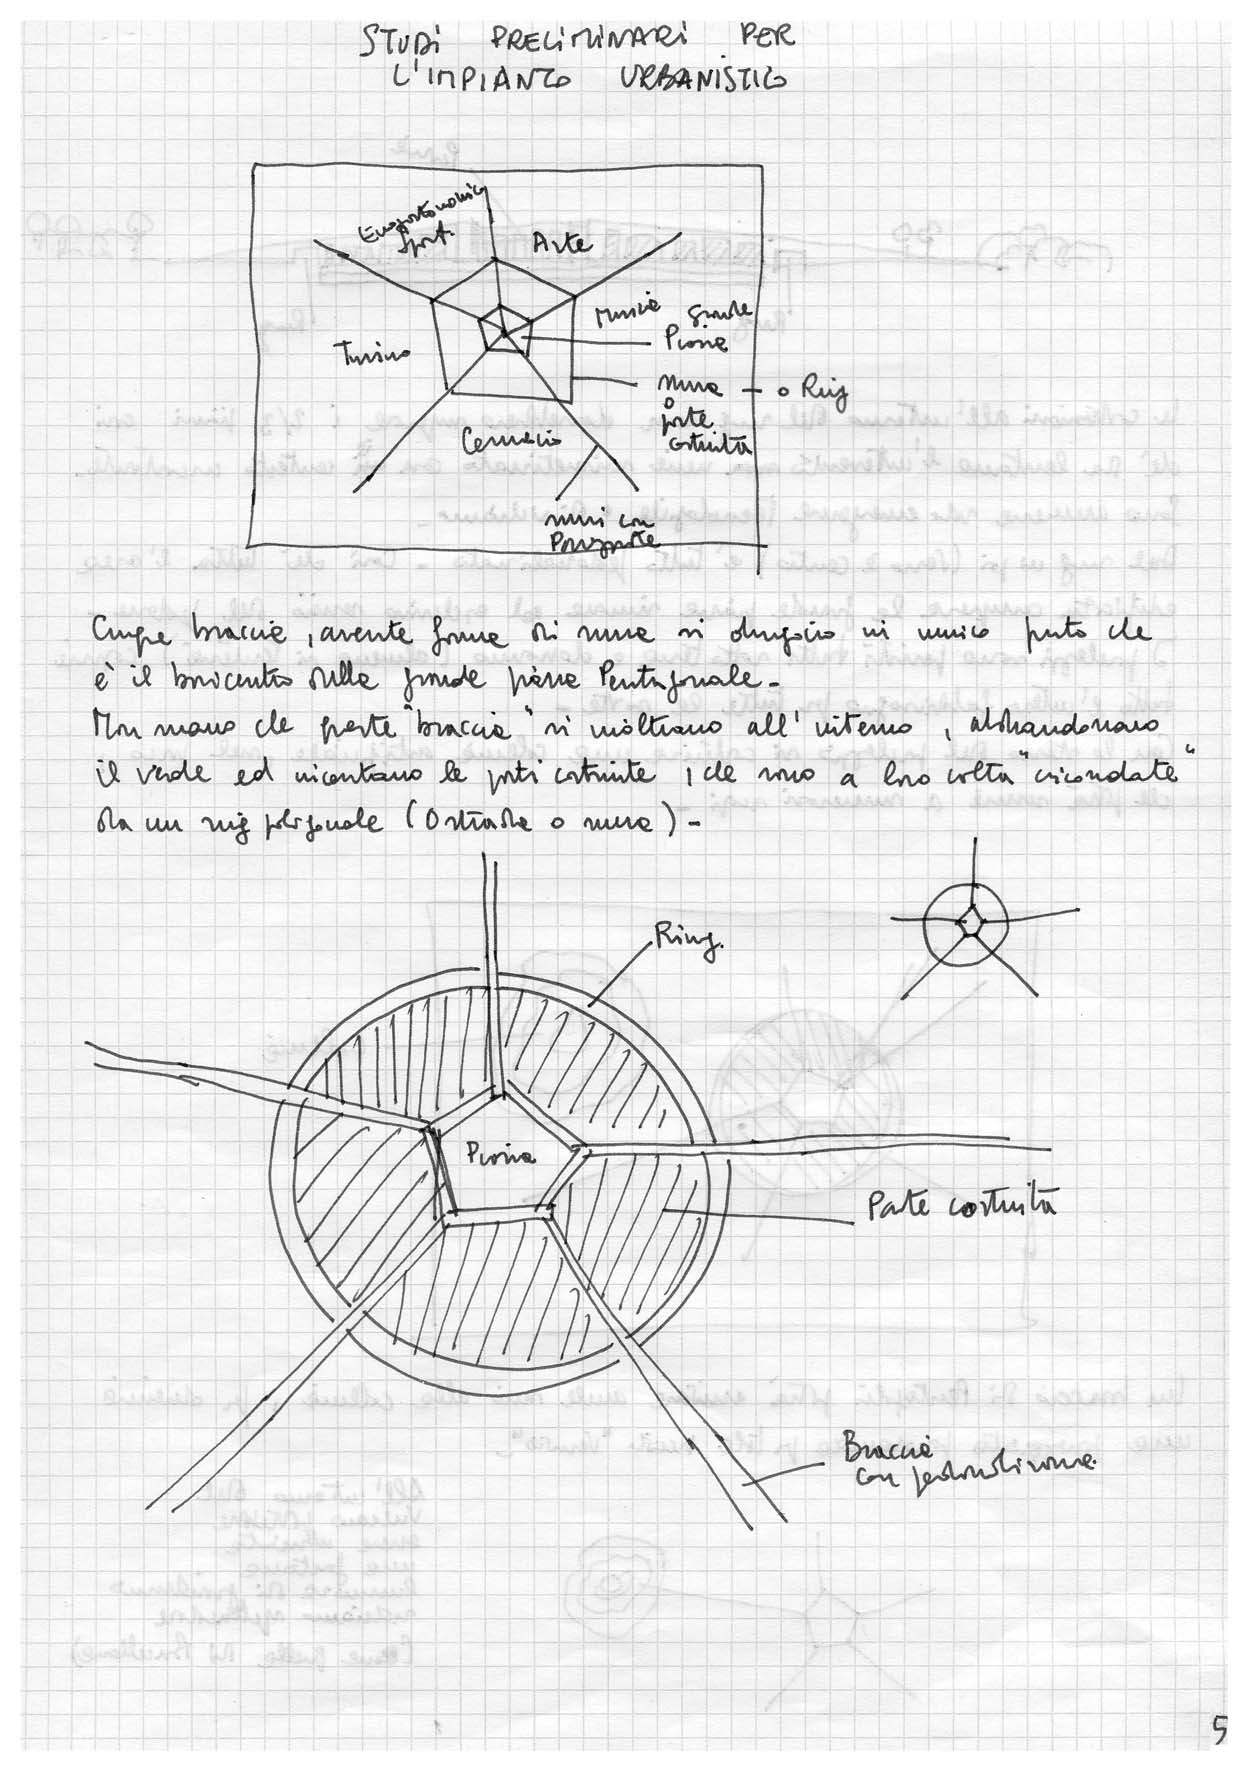 STUDI PRELIMINARI PER
L'IMPIANTO URBANISTICO
Enogastronomico
Sport.
Arte
Musica
Grande
Piazza
Turismo
Mura
o
parte
costruita
o Ring
Commercio
muri con
Passaporte
Cinque braccia, avente forma di mura si dirigono in unico punto che
è il baricentro della grande piazza Pentagonale-
Man mano che queste "braccia" si inoltrano all'interno, abbandonano
il verde ed incontrano le parti costruite, che sono a loro volta "circondate"
da un ring poligonale (o strada o mura)-
Ring.
Piazza
Parte costruita
Braccia
con pedonalizzazione.
5